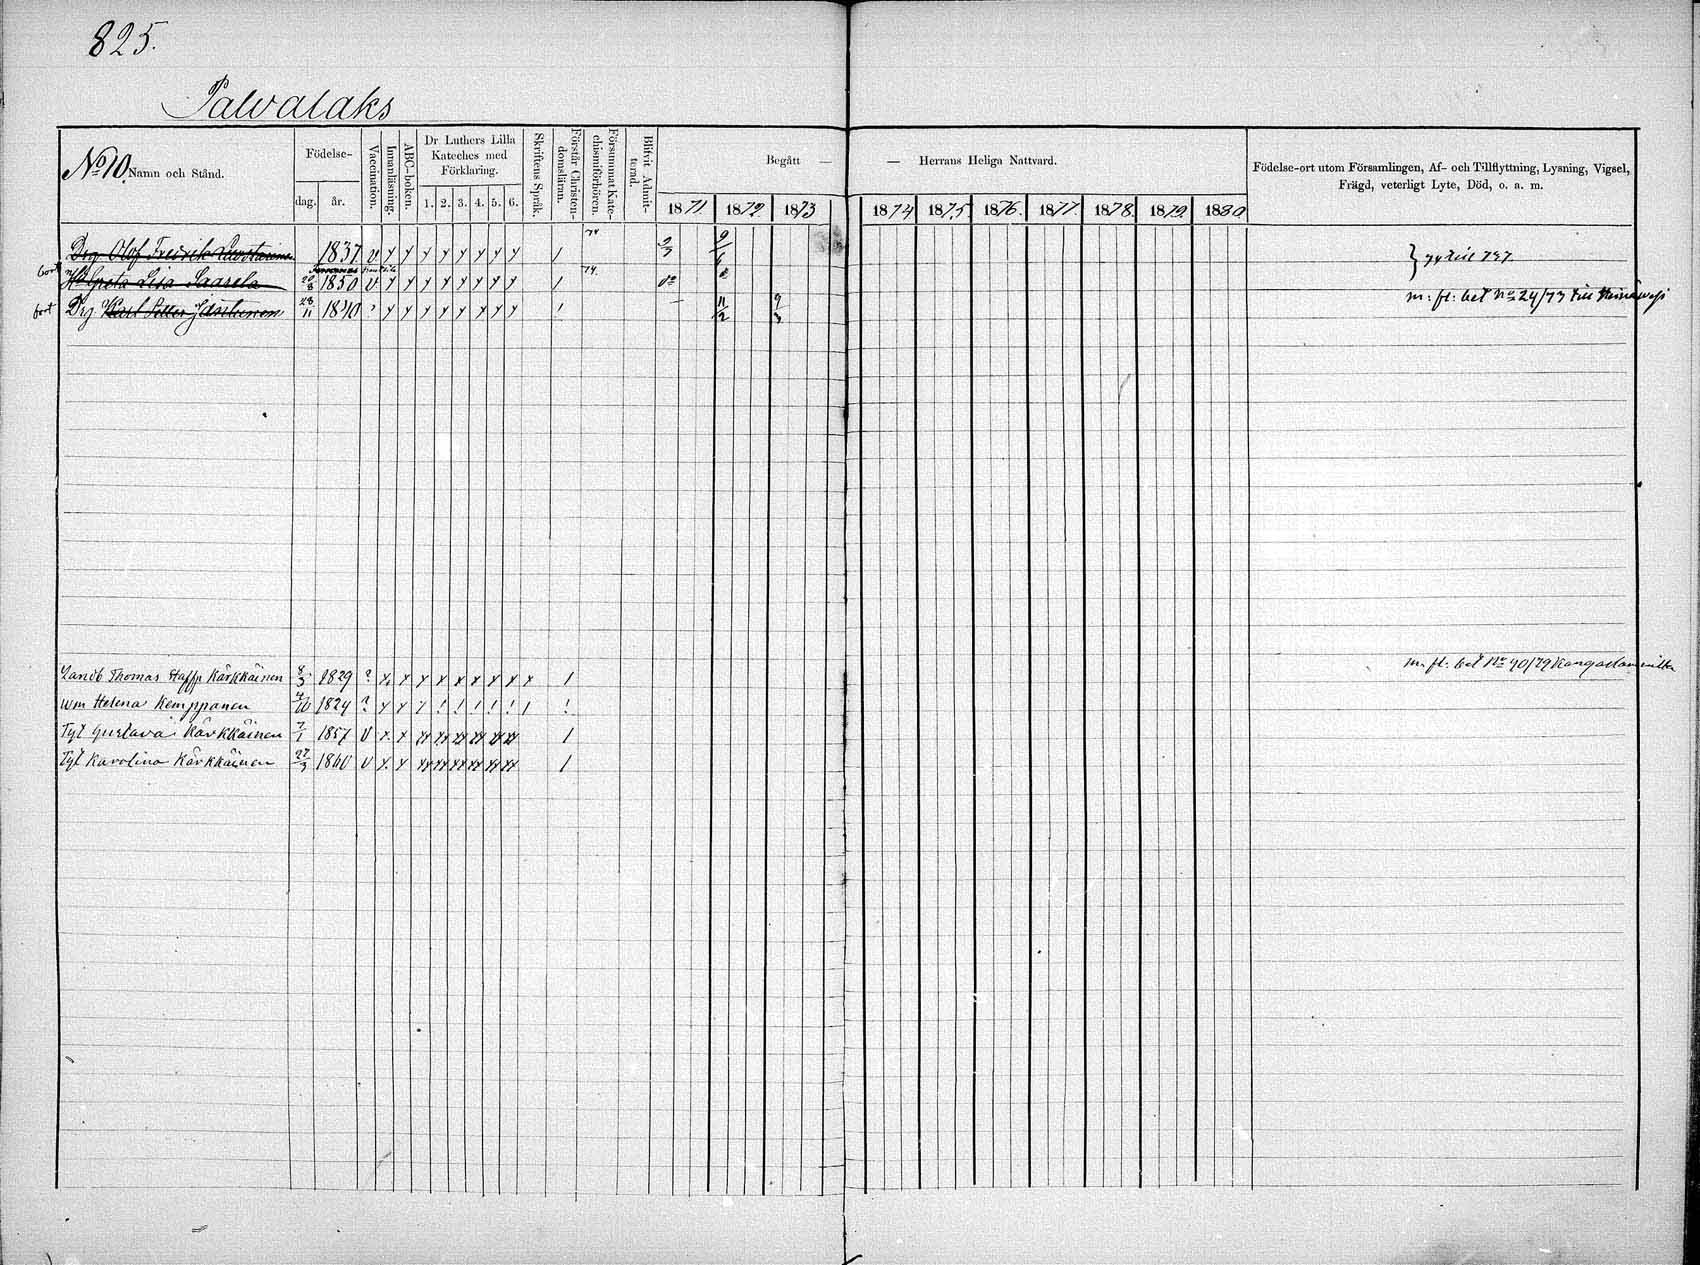 825.
Palvalaks
No 10. Namn och Stånd.
Födelse-
dag.
år.
Vaccination.
Innanläsning.
ABC-boken.
Dr Luthers Lilla
Kateches med
Förklaring.
1. 2. 3. 4. 5. 6.
Skriftens Språk.
Förstår Christen-
domsläran.
Försummat Kate-
chismiförhören.
Blifvit Admit-
terad.
Begått — — Herrans Heliga Nattvard.
1871 1872. 1873 1874 1875. 1876. 1877. 1878. 1879. 1880.
Födelse-ort utom Församlingen, Af- och Tillflyttning, Lysning, Vigsel,
Frägd, veterligt Lyte, Död, o. a. m.
Drg Olof Fredrik 1837 v 74 9/3 9/6 74 till 737
bort Greta Lisa Saarela 20/8 1850 v 74
bort Drg Karl Petter 28/11 1840 11/2 9/3 m: fl: bet No 24/73 till Heinäwesi
Thomas Kärkkäinen 8/3 1829 ? x x x x x x x x x / m. fl: bet No 40/79 Kangaslammilta
Helena Kemppanen 1824 ? x x x ! ! ! ! ! ! !
Gustava Kärkkäinen 7/1 1857 v x x xx xx xx xx xx xx /
Karolina Kärkkäinen 27/3 1860 v x x xx xx xx xx xx xx /